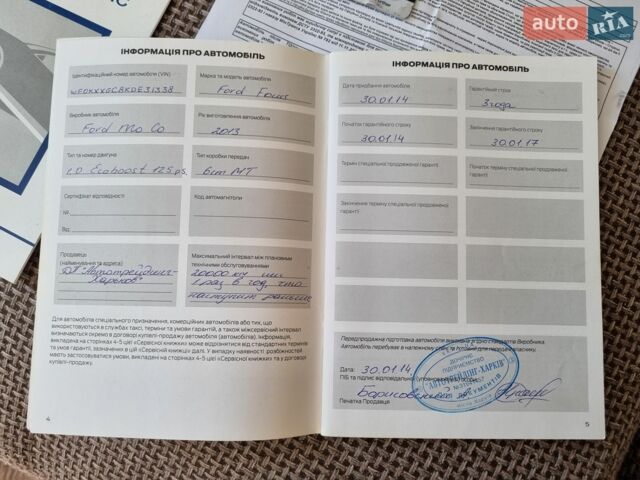 auto RIA
ІНФОРМАЦІЯ ПРО АВТОМОБІЛЬ
Ідентифікаційний номер автомобіля (VIN)
WF0KXXGCBKDE31338
Марка та модель автомобіля
Ford Focus
Виробник автомобіля
Ford Mo Co
Рік виготовлення автомобіля
2013
Тип та номер двигуна
1.0 Ecoboost 125 ps.
Тип коробки передач
6ст МТ
Сертифікат відповідності
№
Від
Код автомагнітоли
Продавець
(найменування та адреса)
ДП "Автотрейдинг-
Харьков"
Максимальний інтервал між плановим
технічними обслуговуваннями
20000 км или
1 раз в год, что
наступит раньше
Для автомобілів спеціального призначення, комерційних автомобілів або тих, що
використовуються в службах таксі, терміни та умови гарантій, а також міжсервісний інтервал
визначаються окремо в договорі купівлі-продажу автомобіля (автомобілів). Інформація,
викладена на сторінках 4-5 цієї «Сервісної книжки» може відрізнятися від стандартних термінів
та умов гарантії, зазначених в цій «Сервісній книжці» далі. У випадку наявності розбіжностей
мають застосовуватися умови, викладені на сторінках 4-5 цієї «Сервісної книжки» та у договорі
купівлі-продажу.
4
ІНФОРМАЦІЯ ПРО АВТОМОБІЛЬ
Дата придбання автомобіля
30.01.14
Гарантійний строк
3 года
Початок гарантійного строку
30.01.14
Закінчення гарантійного строку
30.01.17
Термін спеціальної продовженої гарантії
Початок терміну спеціальної продовженої
гарантії
Закінчення терміну спеціальної продовженої
гарантії
Передпродажна підготовка автомобіля виконана згідно стандартів Виробника.
Автомобіль перебуває в належному стані та готовий для передачі власнику.
Дата: 30.01.14
ПІБ та підпис відповідальної
Печатка Продавця
ДОЧІРНЄ
ПІДПРИЄМСТВО
"АВТОТРЕЙДІНГ-ХАРКІВ"
ДОКУМЕНТІВ
5